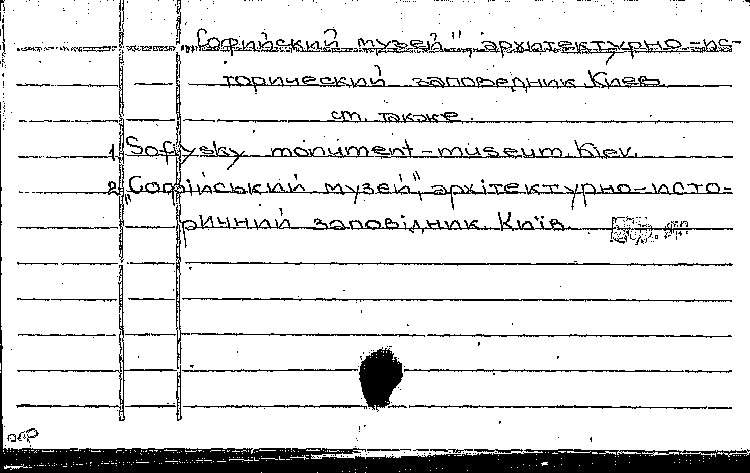 "Софийский музей", архитектурно-ис-
торический заповедник. Киев.
см. также
1. Sofiysky monument-museum. Kiev.
2. "Софійський музей", архітектурно-исто-
ричний заповідник. Київ.